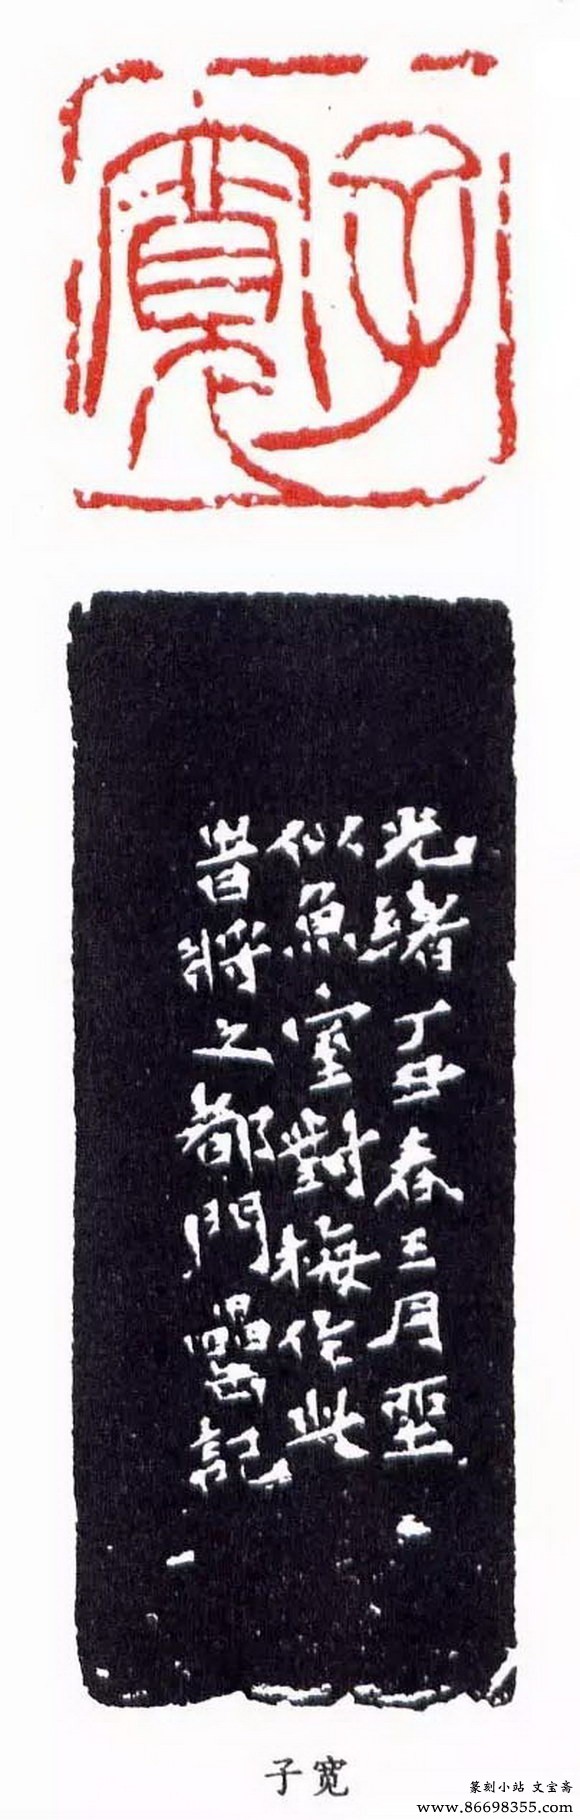 子寬
光緒丁丑春王月
似魚室對梅作此
旹將之都門 記
子宽
篆刻小站 文宝斋
www.86698355.com